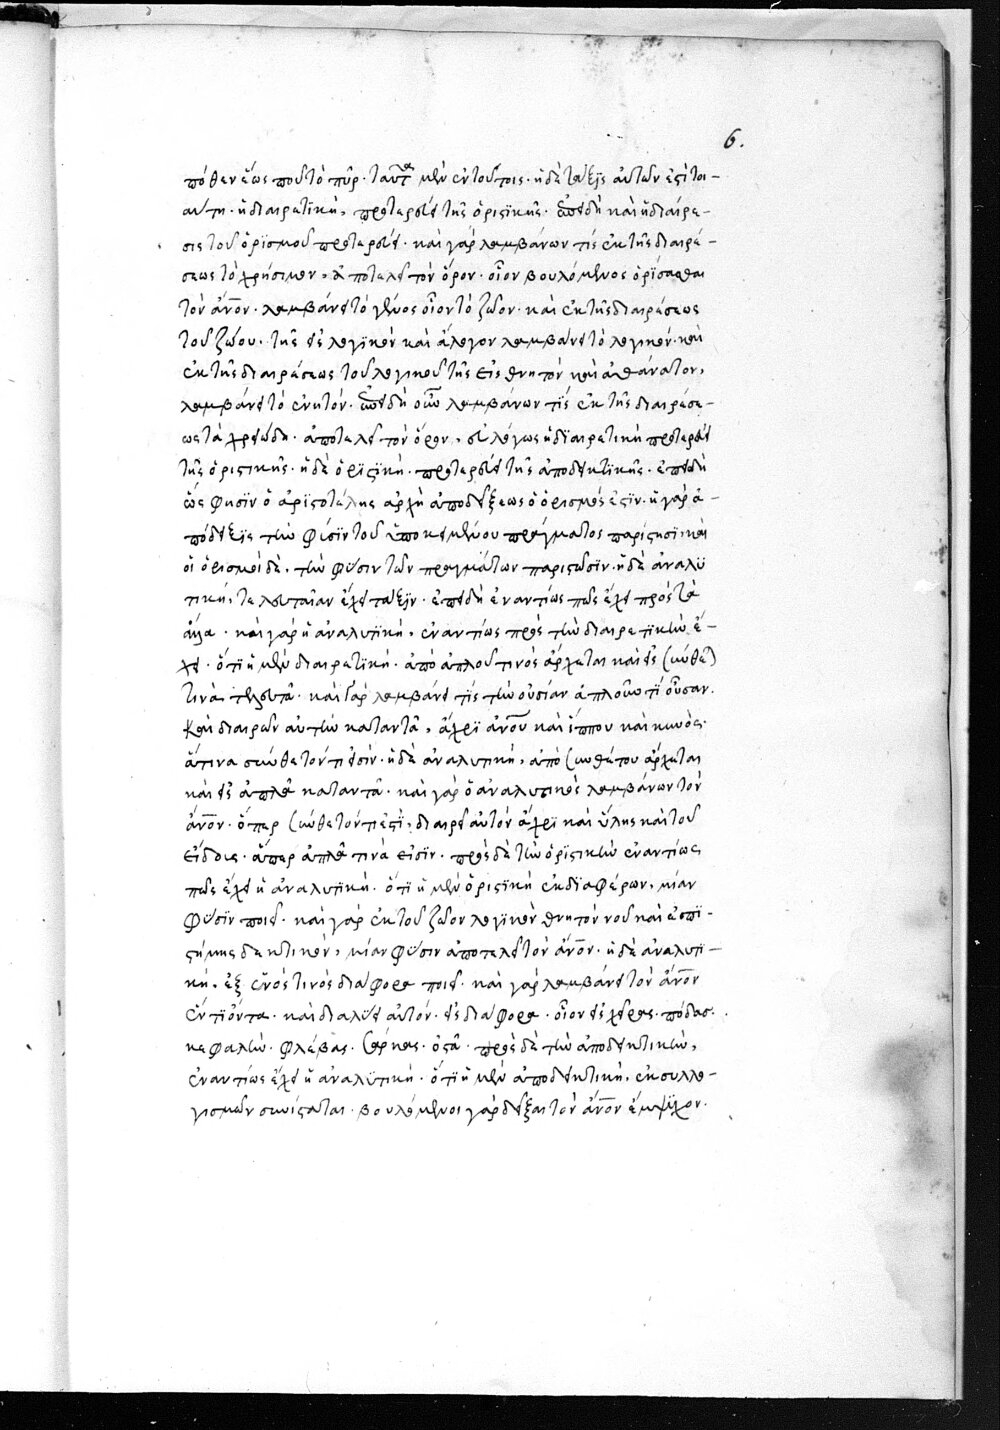 6.
πόθεν ἕως που τὸ πῦρ· ταῦτα μὲν ἐν τούτοις· ἡ δὲ τάξϊς αὐτῶν ἐστὶ τοι-
αύτη· ἡ διαιρετϊκὴ, προτερεύει τῆς ὁριστϊκῆς· ἐπειδὴ καὶ ἡ διαίρε-
σις τοῦ ὁρϊσμοῦ προτερεύει· καὶ γὰρ λαμβάνων τίς ἐκ τῆς διαιρέ-
σεως τὸ χρήσιμον, ἀποτελεῖ τὸν ὅρον· οἷον βουλόμενος ὁρίσασθαι
τὸν ἄνον· λαμβάνει τὸ γένος οἷον τὸ ζῶον· καὶ ἐκ τῆς διαιρέσεως
τοῦ ζώου· τῆς εἰς λογϊκὸν καὶ ἄλογον λαμβάνει τὸ λογικόν· καὶ
ἐκ τῆς διαιρέσεως τοῦ λογικοῦ τῆς εἰς θνητὸν καὶ ἀθάνατον,
λαμβάνει τὸ θνητόν· ἐπειδὴ οὖν λαμβάνων τίς ἐκ τῆς διαιρέσε-
ως τὰ χρειώδη· ἀποτελεῖ τὸν ὅρον, εἰ λόγως ἡ δϊαιρετικὴ προτερεύει
τῆς ὁριστικῆς· ἡ δὲ ὁρϊστϊκὴ· προτερεύει τῆς ἀποδεικτϊκῆς· ἐπειδὴ
ὥς φησϊν ὁ ἀρϊστοτέλης ἀρχὴ ἀποδείξεως ὁ ὁρισμός ἐστϊν· ἡ γὰρ ἀ-
πόδειξϊς τὴν φύσϊν τοῦ ὑποκειμένου πράγματος παρίστησϊ, καὶ
οἱ ὁρισμοὶ δὲ, τὴν φύσιν τῶν πραγμάτων παριστῶσϊν· ἡ δὲ ἀναλϋ
τικὴ, τελευταίαν ἔχει τάξϊν· ἐπειδὴ ἐναντίως πὼς ἔχει πρὸς τὰ
ἄλλα· καὶ γὰρ ἡ ἀναλυτϊκὴ, ἐναντίως πρὸς τὴν διαιρετϊκὴν ἔ-
χει· ὅτϊ ἡ μὲν διαιρετϊκὴ· ἀπὸ ἁπλοῦ τινὸς ἄρχεται καὶ εἰς σύνθετά
τινὰ τελευτᾶ· καὶ γὰρ λαμβάνει τίς τὴν οὐσίαν ἁπλοῦν τϊ οὖσαν.
καὶ διαιρῶν αὐτὴν καταντᾶ, ἄχρϊ ἀνου καὶ ἵππου καὶ κυνός·
ἅτινα σύνθετόν τί εἰσϊν· ἡ δὲ ἀναλυτικὴ, ἀπὸ συνθέτου ἄρχεται
καὶ εἰς ἁπλᾶ καταντᾶ· καὶ γὰρ ὁ ἀναλυτικὸς λαμβάνων τὸν
ἄνον· ὅπερ σύνθετόν τί ἐστϊ, διαιρεῖ αὐτὸν ἄχρϊ καὶ ὕλης καὶ τοῦ
εἴδους· ἅπερ ἁπλᾶ τινὰ εἰσϊν· πρὸς δὲ τὴν ὁρϊστικὴν ἐναντίως
πὼς ἔχει ἡ ἀναλυτϊκὴ· ὅτϊ ἡ μὲν ὁριστϊκὴ ἐκ δϊαφόρων, μίαν
φύσϊν ποιεῖ· καὶ γὰρ ἐκ τοῦ ζῶον λογϊκὸν θνητὸν νοῦ καὶ ἐπϊ-
στήμης δεκτικὸν, μίαν φύσιν ἀποτελεῖ τὸν ἄνον· ἡ δὲ ἀναλυτϊ-
κὴ, ἐξ ἑνός τινὸς διάφορα ποιεῖ· καὶ γὰρ λαμβάνει τὸν ἄνον
ἕν τϊ ὄντα· καὶ διαλύει αὐτὸν· εἰς διάφορα· οἷον εἰς χεῖρας· πόδας·
κεφαλὴν· φλέβας· σάρκας· ὀστᾶ· πρὸς δὲ τὴν ἀποδεικτικὴν,
ἐναντίως ἔχει ἡ ἀναλϋτικὴ· ὅτϊ ἡ μὲν ἀποδεικτικὴ, ἐκ συλλο-
γισμῶν συνίσταται· βουλόμενοι γὰρ δεῖξαι τὸν ἄνον ἔμψϋχον·